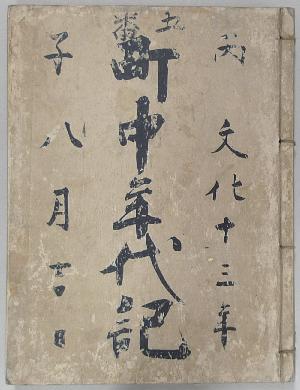 文化十三年
丙
五番
町中年代記
子八月吉日